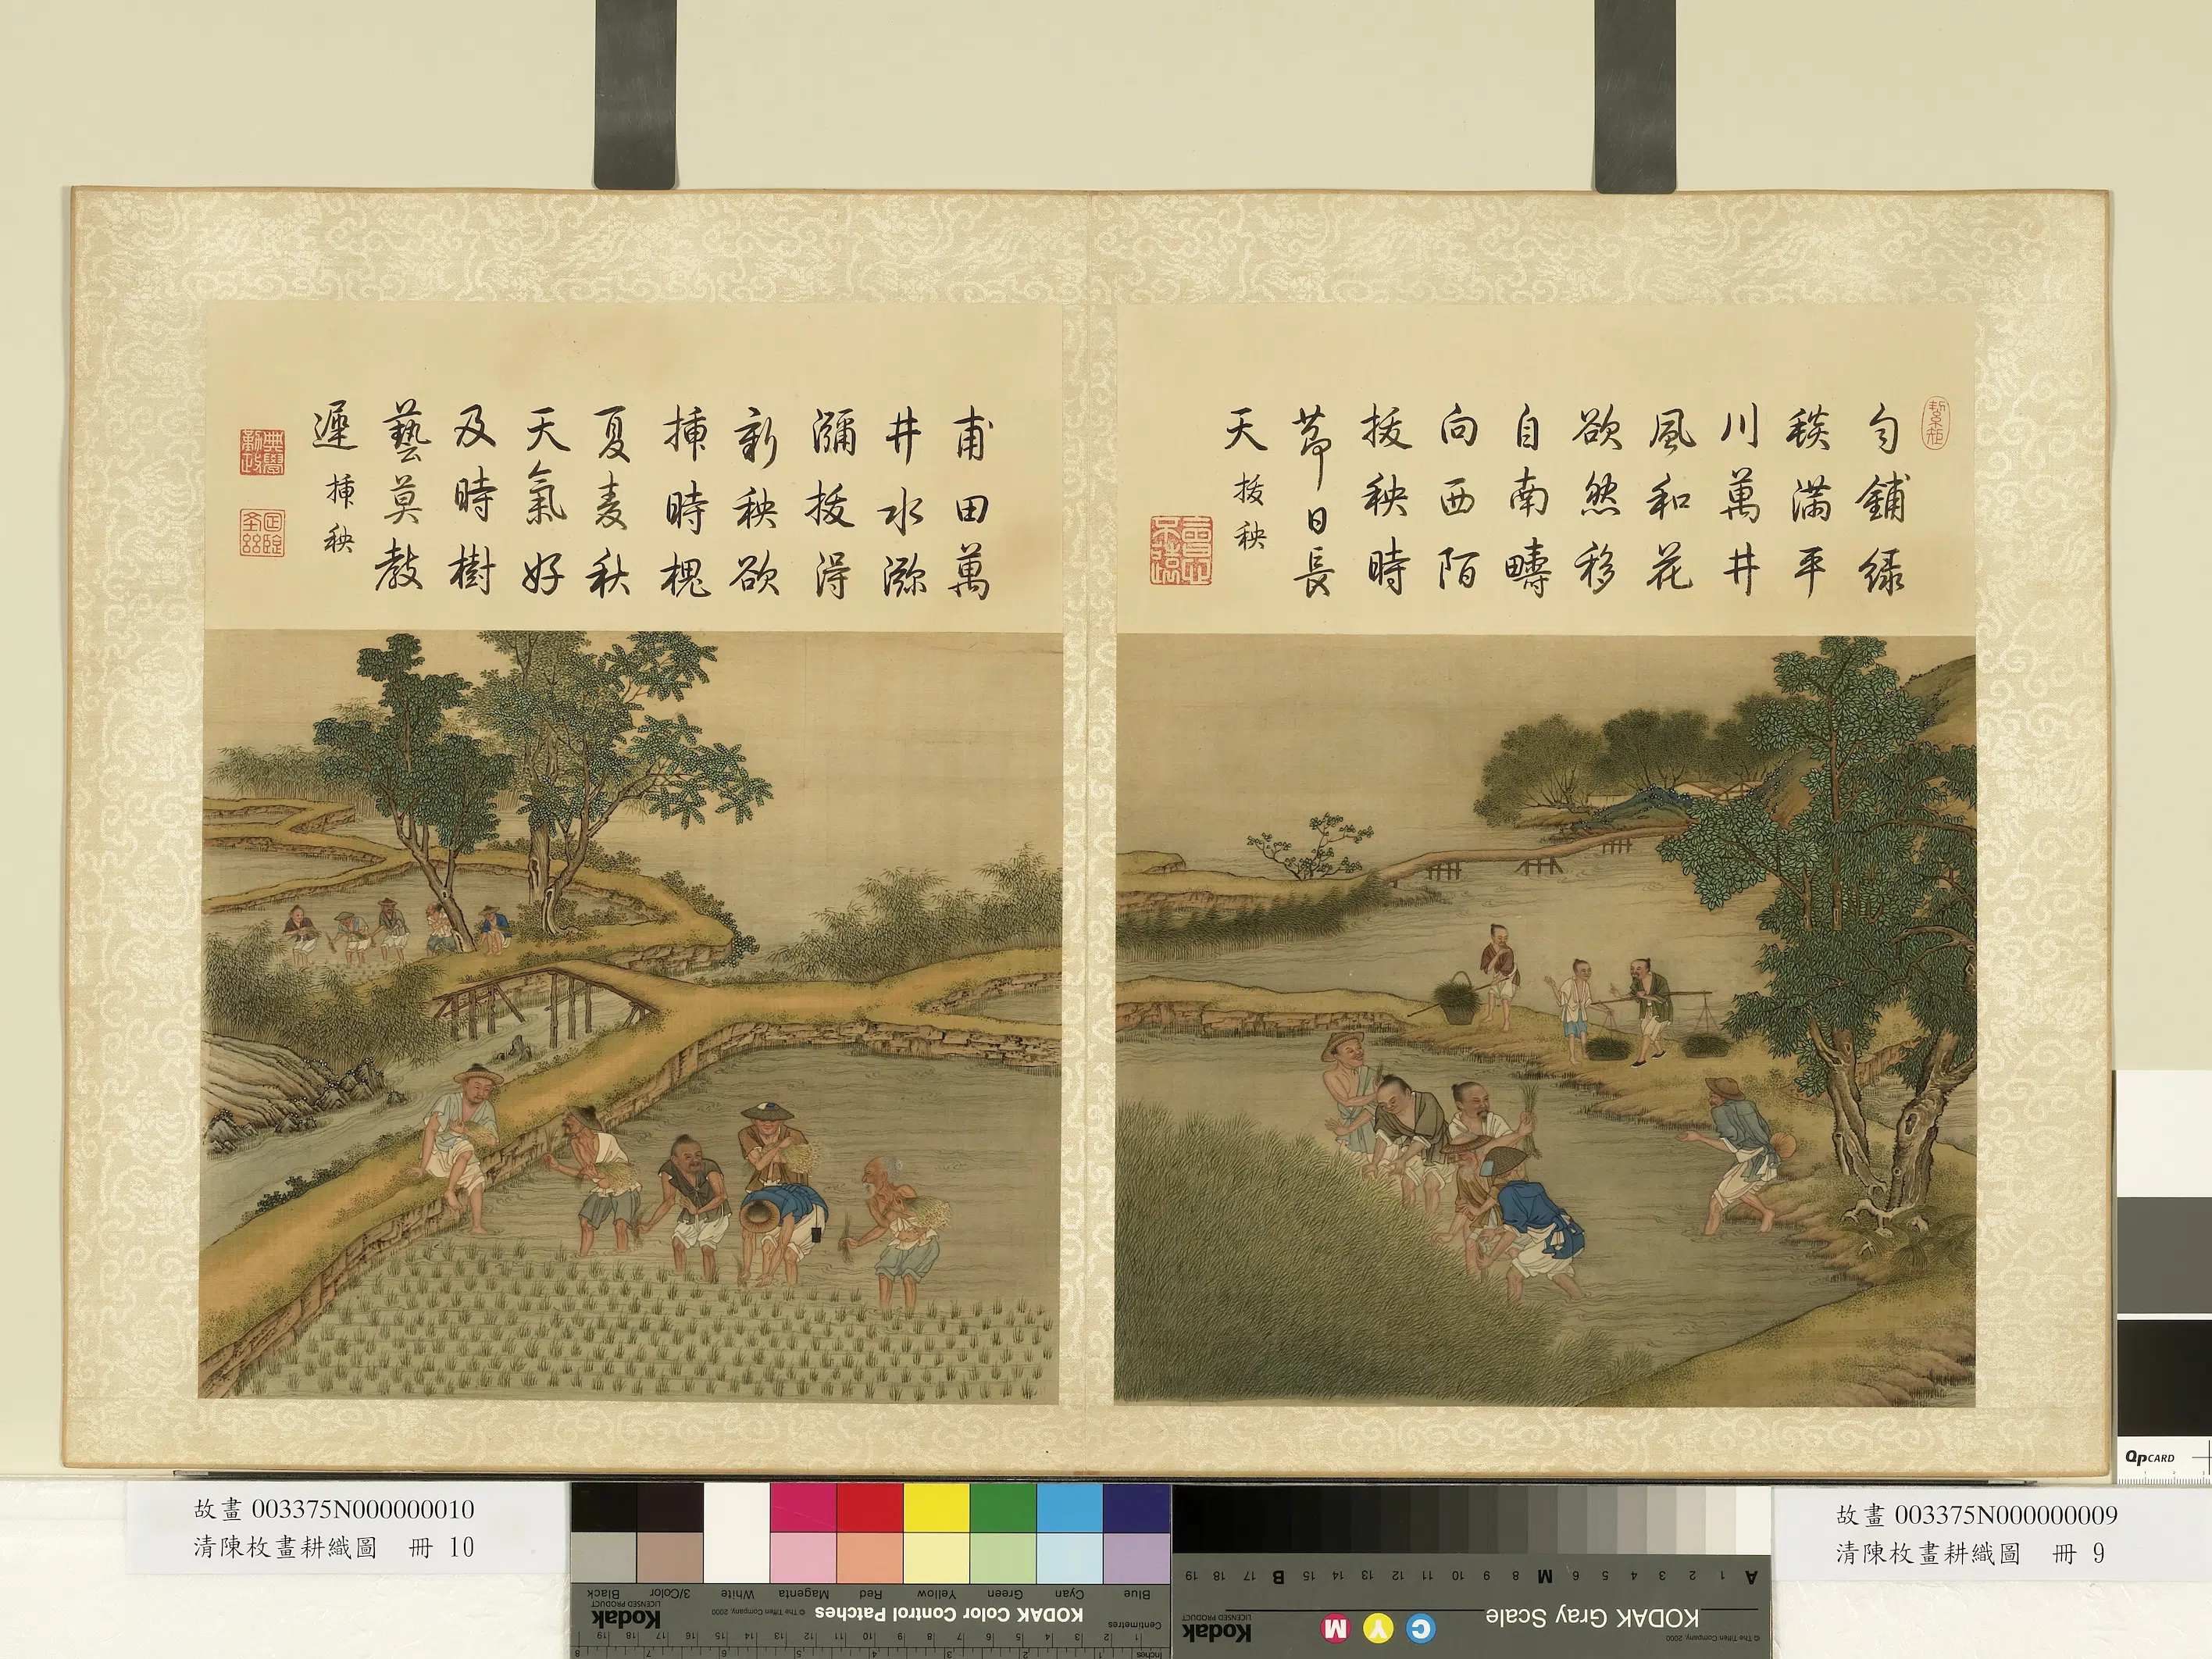 絜矩
勻鋪綠
毯滿平
川萬井
風和花
欲然移
自南疇
向西陌
拔秧時
節日長
天
拔秧
甫田萬
井水㳽
瀰拔得
新秧欲
揷時槐
夏麦秋
天氣好
及時樹
藝莫教
遲
揷秧
典學勤政
故畫 003375N000000010
清陳枚畫耕織圖 冊 10
故畫 003375N000000009
清陳枚畫耕織圖 冊 9
QPCARD
KODAK Color Control Patches
© The Tiffen Company, 2000
Kodak
LICENSED PRODUCT
Blue Cyan Green Yellow Red Magenta White 3/Color Black
Centimetres
Inches
KODAK Gray Scale
C Y M
Kodak
LICENSED PRODUCT
© The Tiffen Company, 2000
A 1 2 3 4 5 6 M 8 9 10 11 12 13 14 15 B 17 18 19